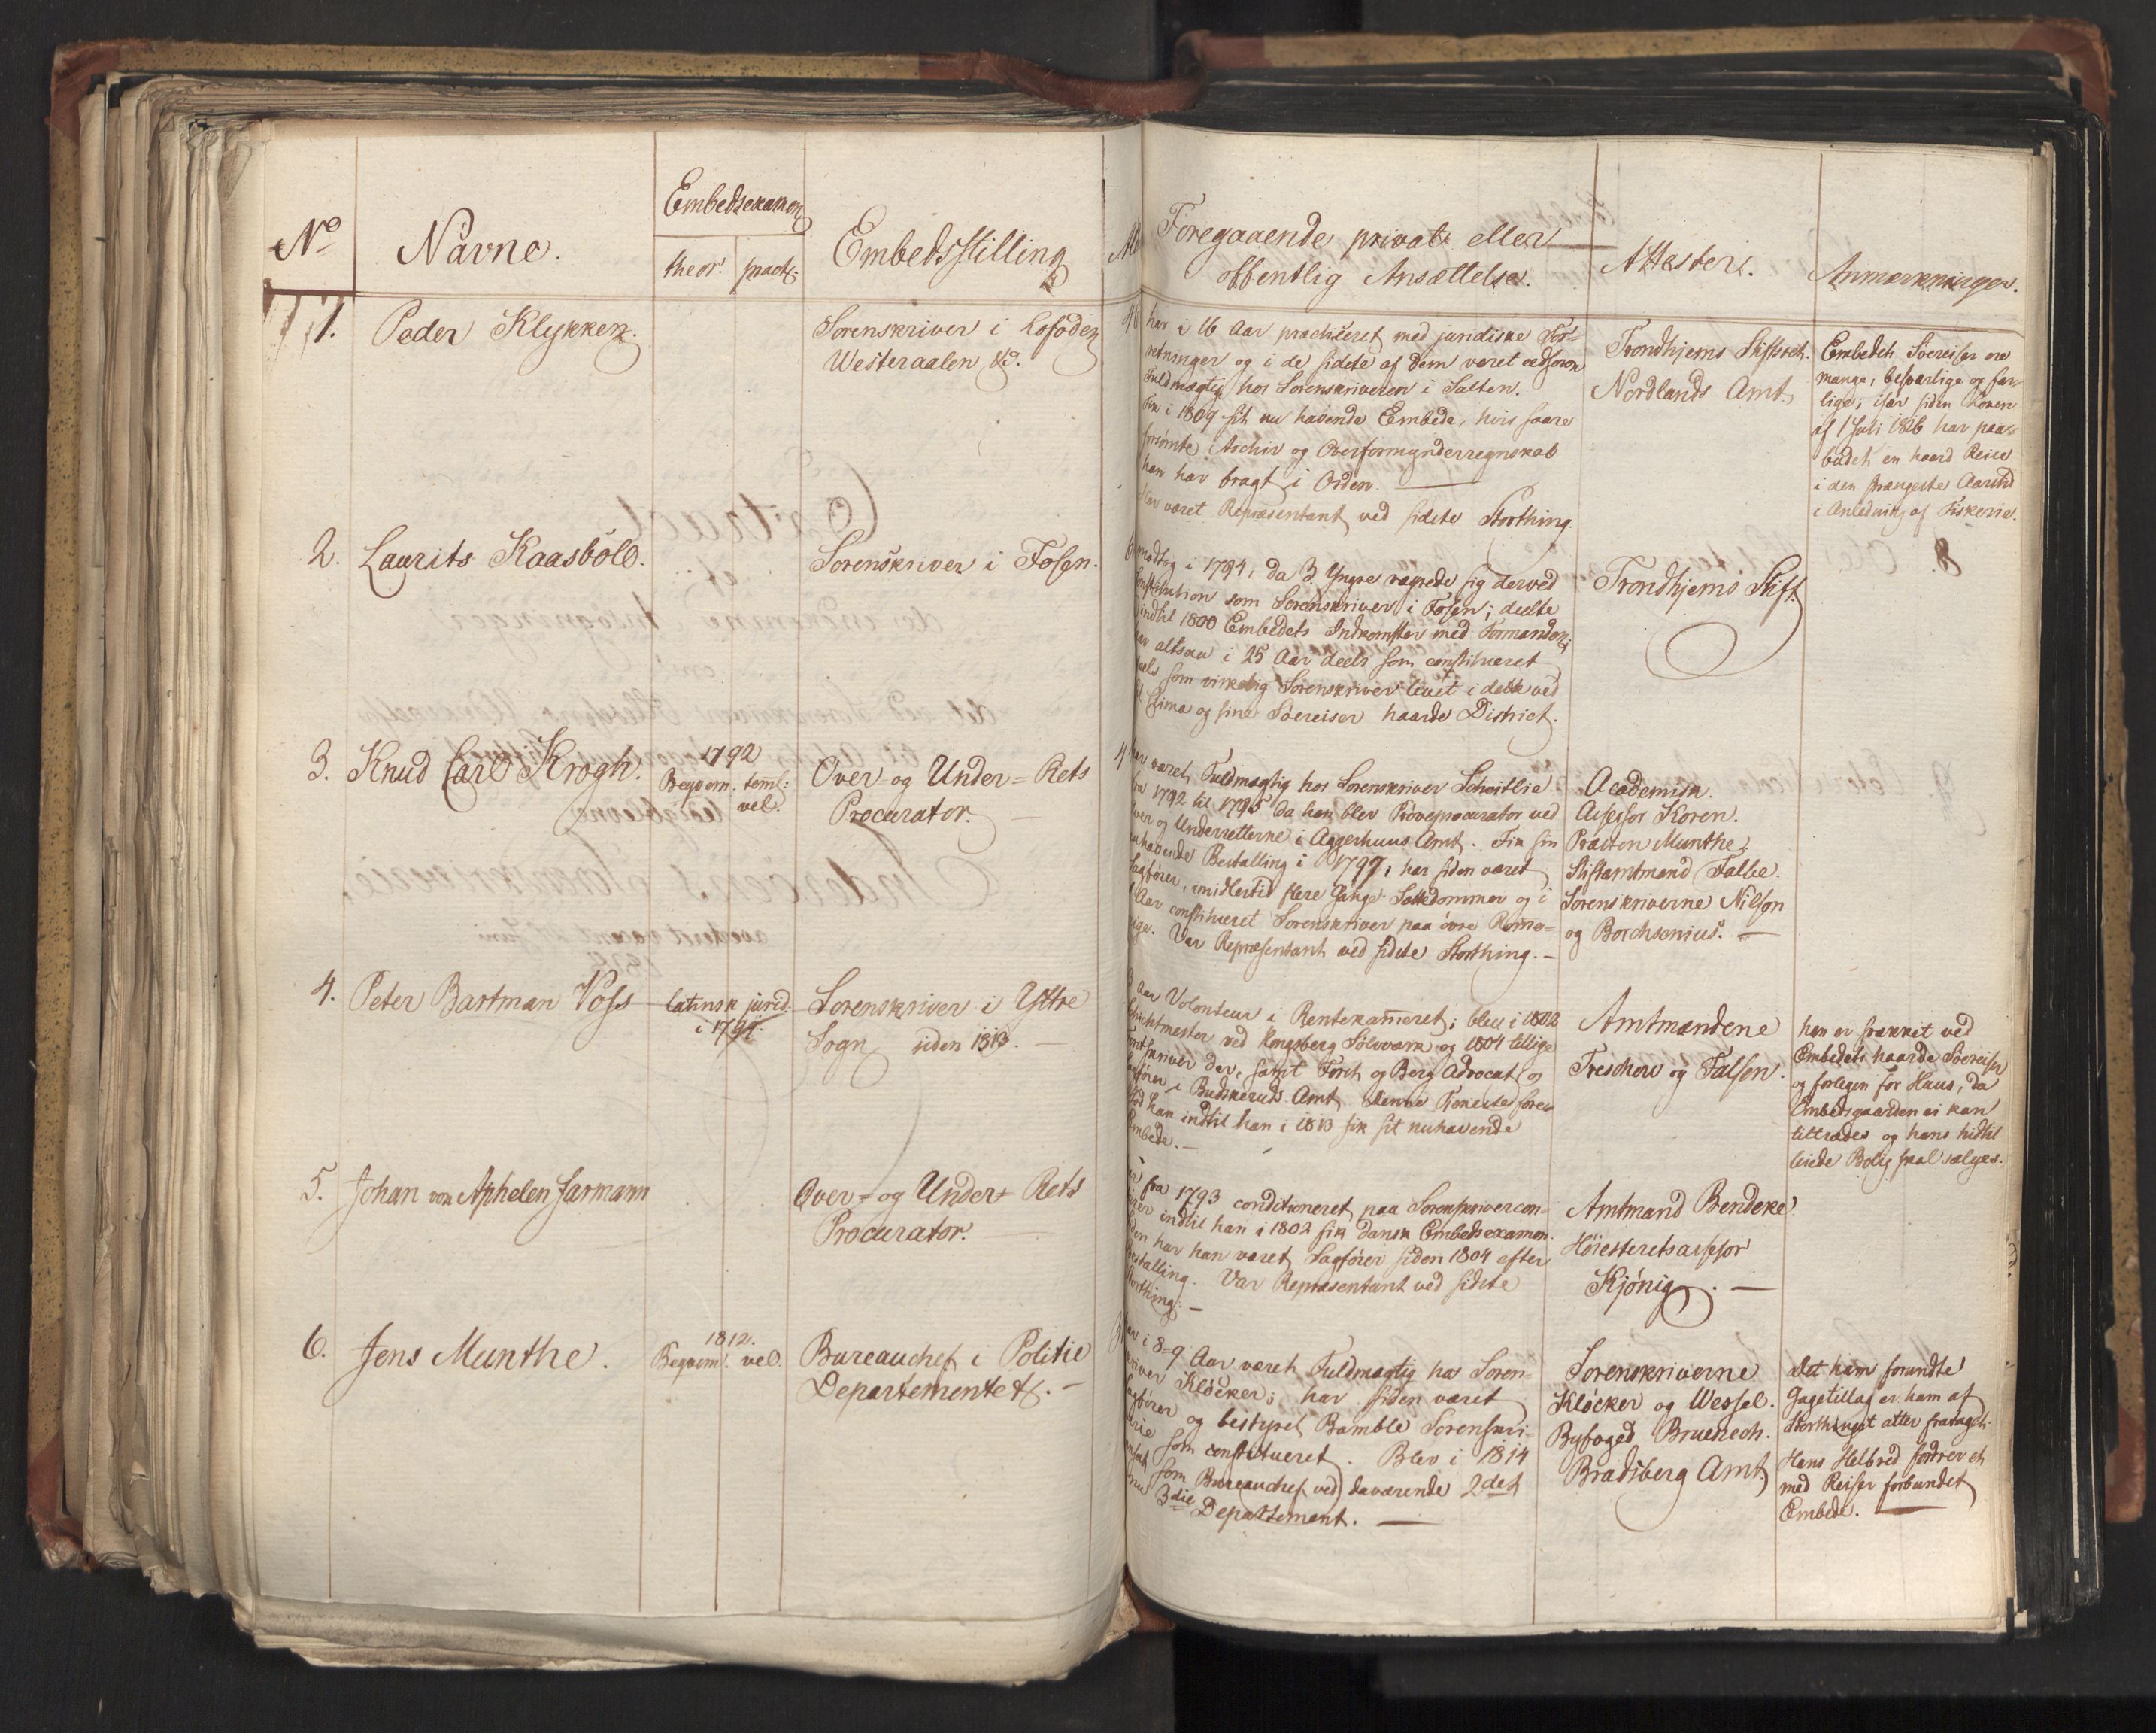 No
Navne.
Embedsexamen
theor:
pract:
Embedsstilling
Foregaaende privat eller
offentlig Ansættelse.
Attester.
Anmærkninger.
1.
Peder Klykken.
Sorenskriver i Lofoden
Westeraalen &c.
har i 16 Aar practiceret med juridiske For-
retninger og i de sidste af dem været edsvoren
Fuldmægtig hos Sorenskriveren i Salten.
Fik i 1809 sit nu havende Embede, hvis saare
forsømte Archiv og Overformynderregnskab
han har bragt i Orden.
Har været Repræsentant ved sidste Storthing.
Trondhjems Stift
Nordlands Amt.
Embedets Søereiser ere
mange, besværlige og far-
lige; især siden Loven
af 1 Juli 1816 har paa-
budet en haard Reise
i den strængeste Aarstid
i Anledning af Fiskerie.
2.
Laurits Kaasböll.
Sorenskriver i Fosen.
modtog i 1794, da 3 Yngre vægrede sig derved
Constitution som Sorenskriver i Fosen; deelte
indtil 1800 Embedets Indkomster med Formanden;
har altsaa i 25 Aar deels som constitueret
deels som virkelig Sorenskriver levet i dette ved
sit Clima og sine Søereiser haarde District.
Trondhjems Stift
3.
Knud Carl Krogh.
1792
Beqvem.
teml:
vel.
Over- og Under-Rets
Procurator.
har været Fuldmægtig hos Sorenskriver Scheitlie
fra 1792 til 1795 da han blev Prøveprocurator ved
Over og Underretterne i Aggerhuus Amt. Fik sin
nuhavende Bestalling i 1797, har siden været
Sagfører, imidlertid flere Gange Sættedommer og i
Aar constitueret Sorenskriver paa øvre Rome-
rige. Var Repræsentant ved sidste Storthing.
Academisk.
Assessor Koren.
Præsten Munthe.
Stiftamtmand Falbe.
Sorenskriverne Nilson
og Borchsenius.
4.
Peter Bartman Voss
latinsk jurid:
i 1797.
Sorenskriver i Yttre
Sogn siden 1813.
3 Aar Volonteur i Rentekammeret; blev i 1802
Schichtmester ved Kongsberg Sølvværk og 1804 tillige
Forstskriver der, samt Forst og Berg Advocat og
Sagfører i Buskeruds Amt. Denne Tjeneste fore-
stod han indtil han i 1813 fik sit nuhavende
Embede.
Amtmændene
Treschow og Falsen.
han er svækket ved
Embedets haarde Søereiser
og forlegen for Huus, da
Embedsgaarden ei kan
tiltrædes og hans hidtil
leiede Bolig skal sælges.
5.
Johan von Aphelen Jarmann
Over- og Under-Rets
Procurator.
fra 1793 conditioneret paa Sorenskrivercon-
torer indtil han i 1802 fik dansk Embedsexamen.
Siden har han været Sagfører siden 1804 efter
Bestalling. Var Repræsentant ved sidste
Storthing.
Amtmand Bendeke
Høiesteretsassessor
Kjönig.
6.
Jens Munthe.
1812.
Beqvem.
vel.
Bureauchef i Politie
Departementet.
har i 8-9 Aar været Fuldmægtig hos Soren-
skriver Klöcker; har siden været
Sagfører og bestyret Bamble Sorenskri-
verie som constitueret. Blev i 1814
ansat som Bureauchef ved daværende 2det
nu 3die Departement.
Sorenskriverne
Klöcker og Wessel.
Byfoged Bruenech.
Bradsberg Amt.
det ham forundte
Gagetillæg er ham af
Storthinget atter fratagel.
Hans Helbred fodrer et
med Reiser forbundet
Embede.